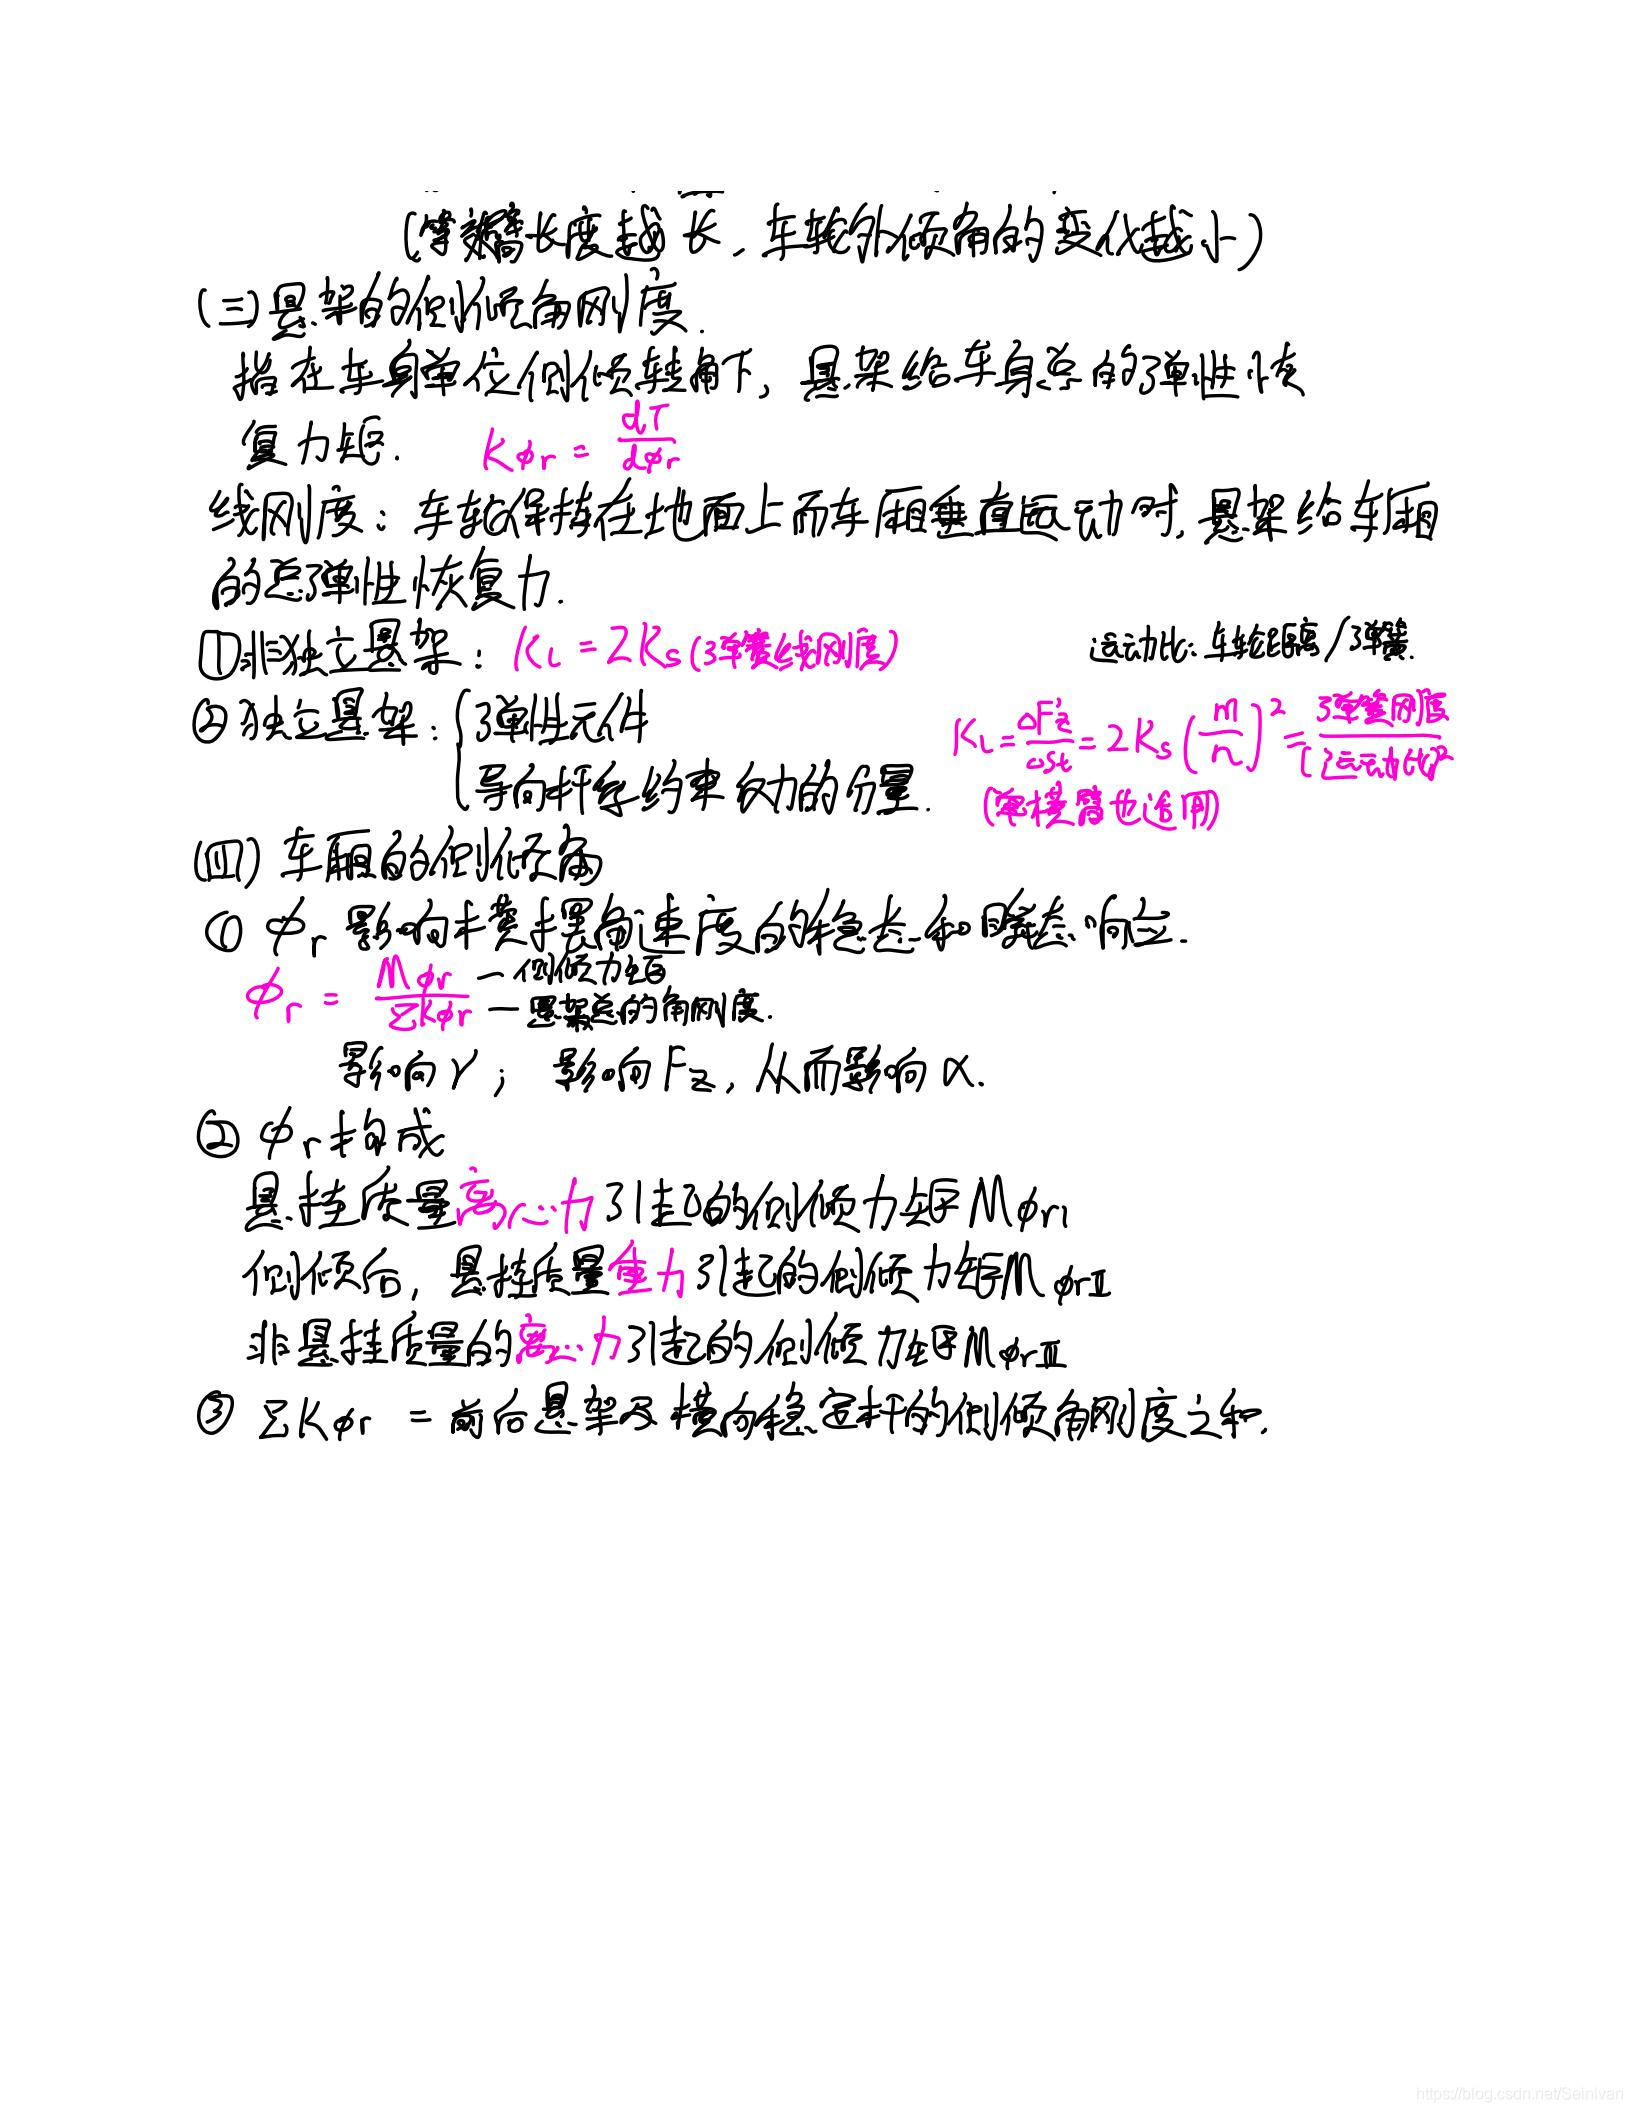 (等效臂长度越长，车轮外倾角的变化越小)
(三)悬架的侧倾角刚度.
指在车身单位侧倾转角下，悬架给车身总的弹性恢
复力矩. Kφr = dT/dφr
线刚度：车轮保持在地面上而车厢垂直运动时,悬架给车厢
的总弹性恢复力.
①非独立悬架：KL = 2Ks (弹簧线刚度) 运动比:车轮距离/弹簧.
②独立悬架：{弹性元件
导向杆系约束反力的分量.
KL = ΔFz'/ΔSt = 2Ks (m/n)² = 弹簧刚度/(运动比)²
(单横臂也适用)
(四) 车厢的侧倾角
① φr 影响横摆角速度的稳态和瞬态响应.
φr = Mφr/ΣKφr —侧倾力矩
—悬架总的角刚度.
影响γ； 影响Fz，从而影响α.
② φr构成
悬挂质量离心力引起的侧倾力矩MφrⅠ
侧倾后，悬挂质量重力引起的侧倾力矩MφrⅡ
非悬挂质量的离心力引起的侧倾力矩MφrⅢ
③ ΣKφr = 前后悬架及横向稳定杆的侧倾角刚度之和.
https://blog.csdn.net/SeinIvan